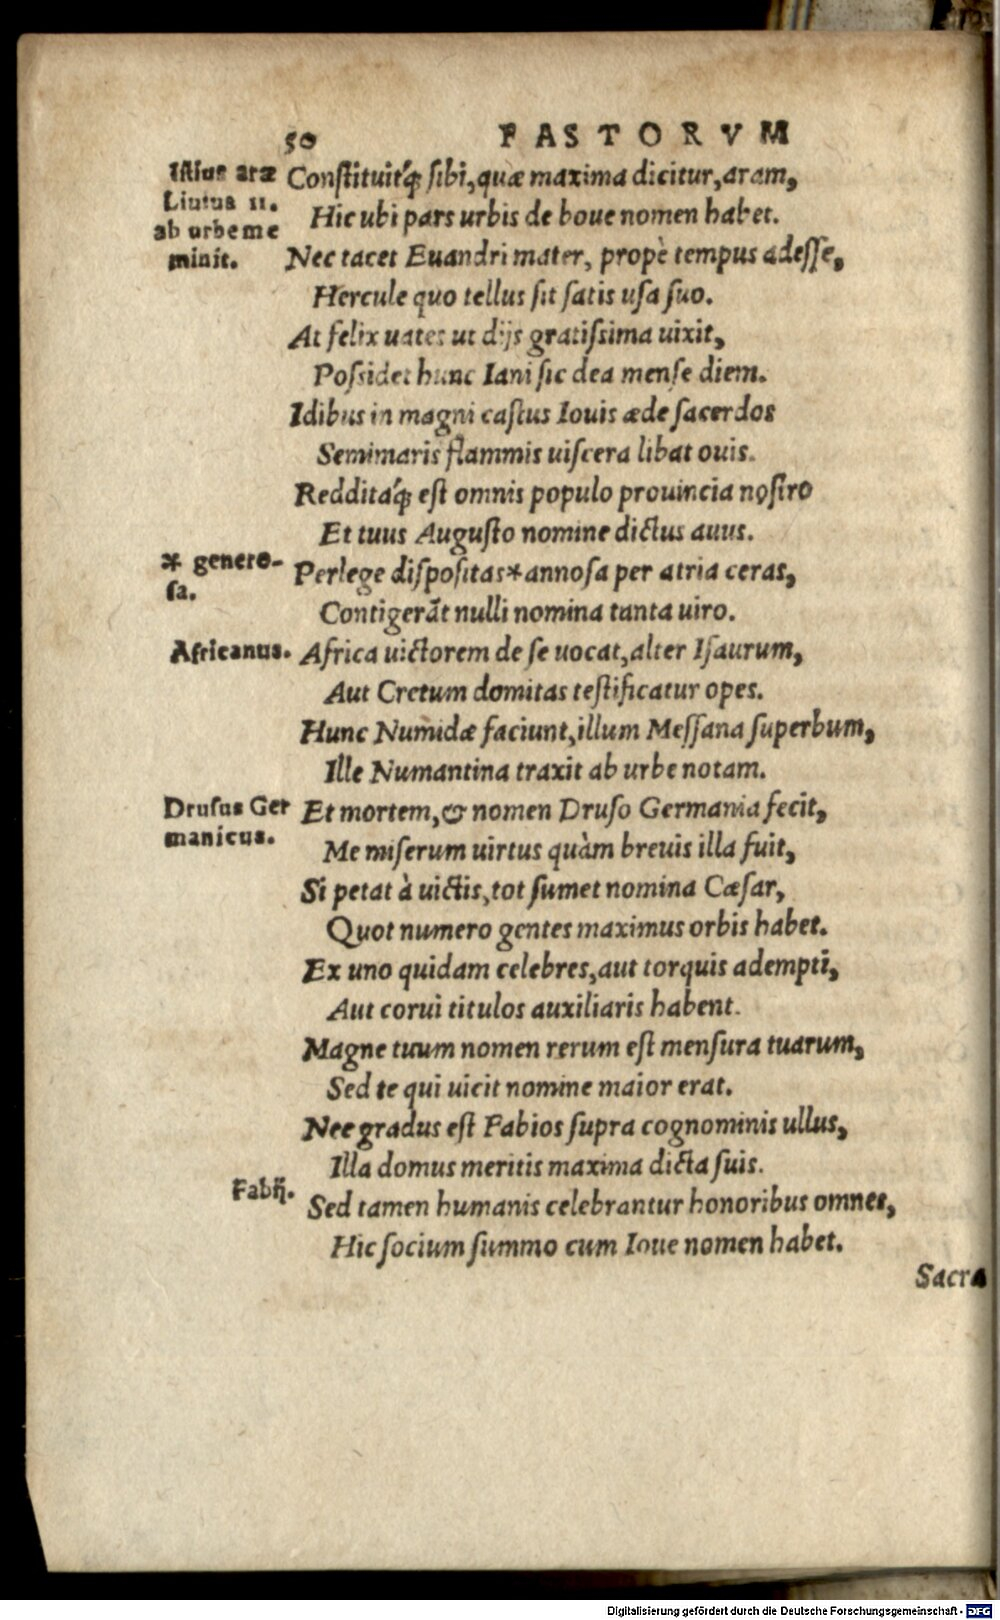 50 FASTORVM
Istius aræ
Liuius 11.
ab urbe me
minit.
Constituitq́ꝫ sibi, quæ maxima dicitur, aram,
Hic ubi pars urbis de boue nomen habet.
Nec tacet Euandri mater, propè tempus adesse,
Hercule quo tellus sit satis usa suo.
At felix uates ut dijs gratissima uixit,
Possidet hunc Iani sic dea mense diem.
Idibus in magni castus Iouis æde sacerdos
Semimaris flammis uiscera libat ouis.
Redditaq́ꝫ est omnis populo prouincia nostro
Et tuus Augusto nomine dictus auus.
* genero-
sa.
Perlege dispositas* annosa per atria ceras,
Contigerāt nulli nomina tanta uiro.
Africanus.
Africa uictorem de se uocat, alter Isaurum,
Aut Cretum domitas testificatur opes.
Hunc Numidæ faciunt, illum Messana superbum,
Ille Numantina traxit ab urbe notam.
Drusus Ger
manicus.
Et mortem, & nomen Druso Germania fecit,
Me miserum uirtus quàm breuis illa fuit,
Si petat à uictis, tot sumet nomina Cæsar,
Quot numero gentes maximus orbis habet.
Ex uno quidam celebres, aut torquis adempti,
Aut corui titulos auxiliaris habent.
Magne tuum nomen rerum est mensura tuarum,
Sed te qui uicit nomine maior erat.
Nec gradus est Fabios supra cognominis ullus,
Illa domus meritis maxima dicta suis.
Fabij.
Sed tamen humanis celebrantur honoribus omnes,
Hic socium summo cum Ioue nomen habet.
Sacra
Digitalisierung gefördert durch die Deutsche Forschungsgemeinschaft - DFG